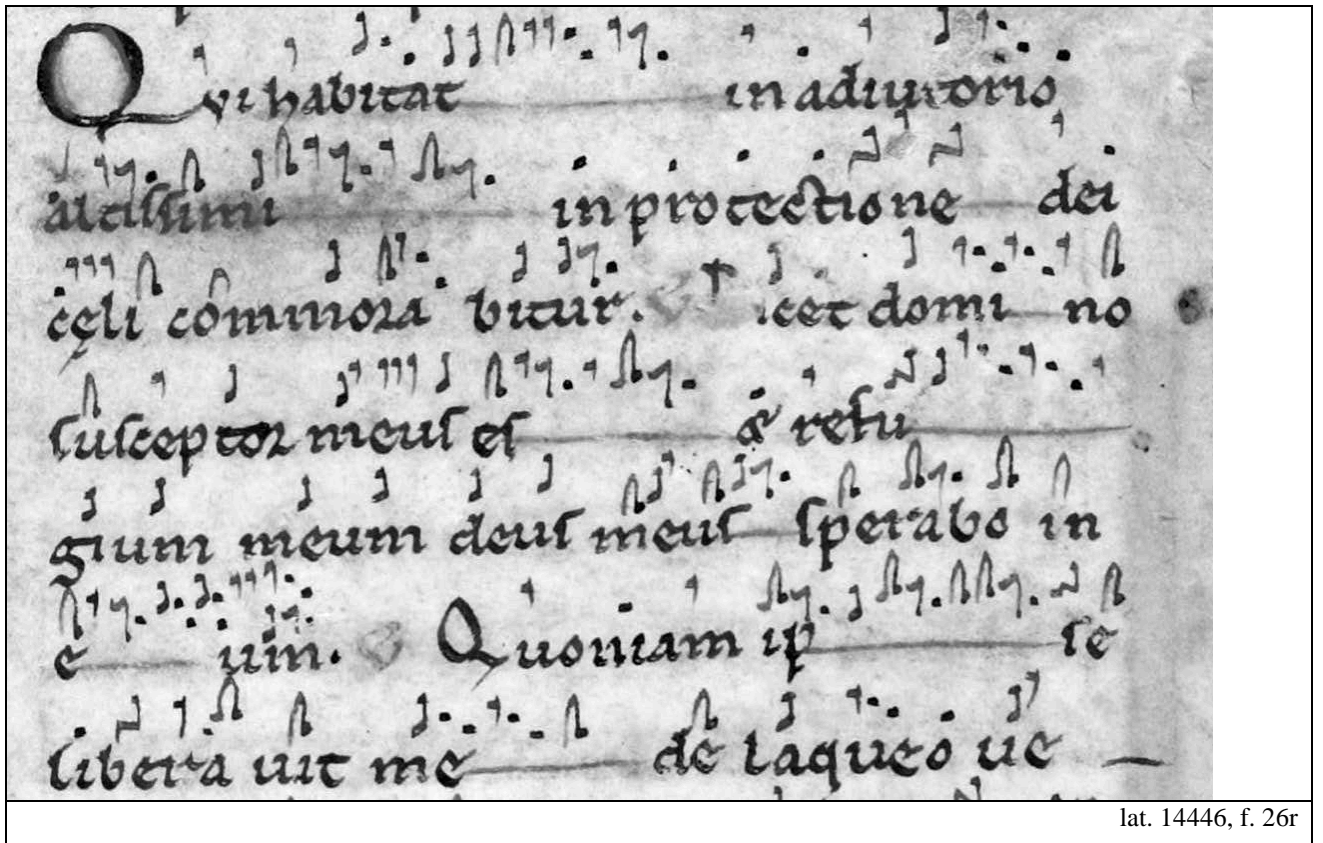 Qvi habitat in adiutorio
altissimi in protectione dei
cęli commora bitur. icet domi no
susceptor meus es & refu
gium meum deus meus sperabo in
e um. Quoniam ip se
libera uit me de laqueo ue
lat. 14446, f. 26r